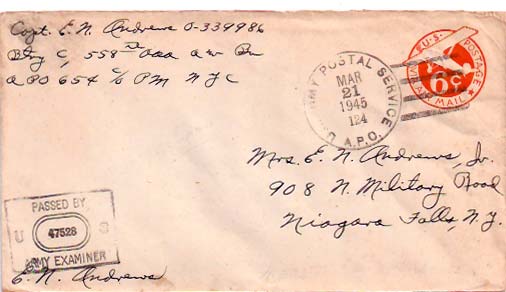 Capt. E. N. Andrews O-339986
Btry C, 558th AAA AW Bn
APO 654 c/o PM NYC
ARMY POSTAL SERVICE
MAR
21
1945
124
A.P.O.
U.S. POSTAGE
6¢
VIA AIR MAIL
Mrs. E. N. Andrews, Jr.
908 N. Military Road
Niagara Falls, N.Y.
PASSED BY
U 47528 S
ARMY EXAMINER
E. N. Andrews